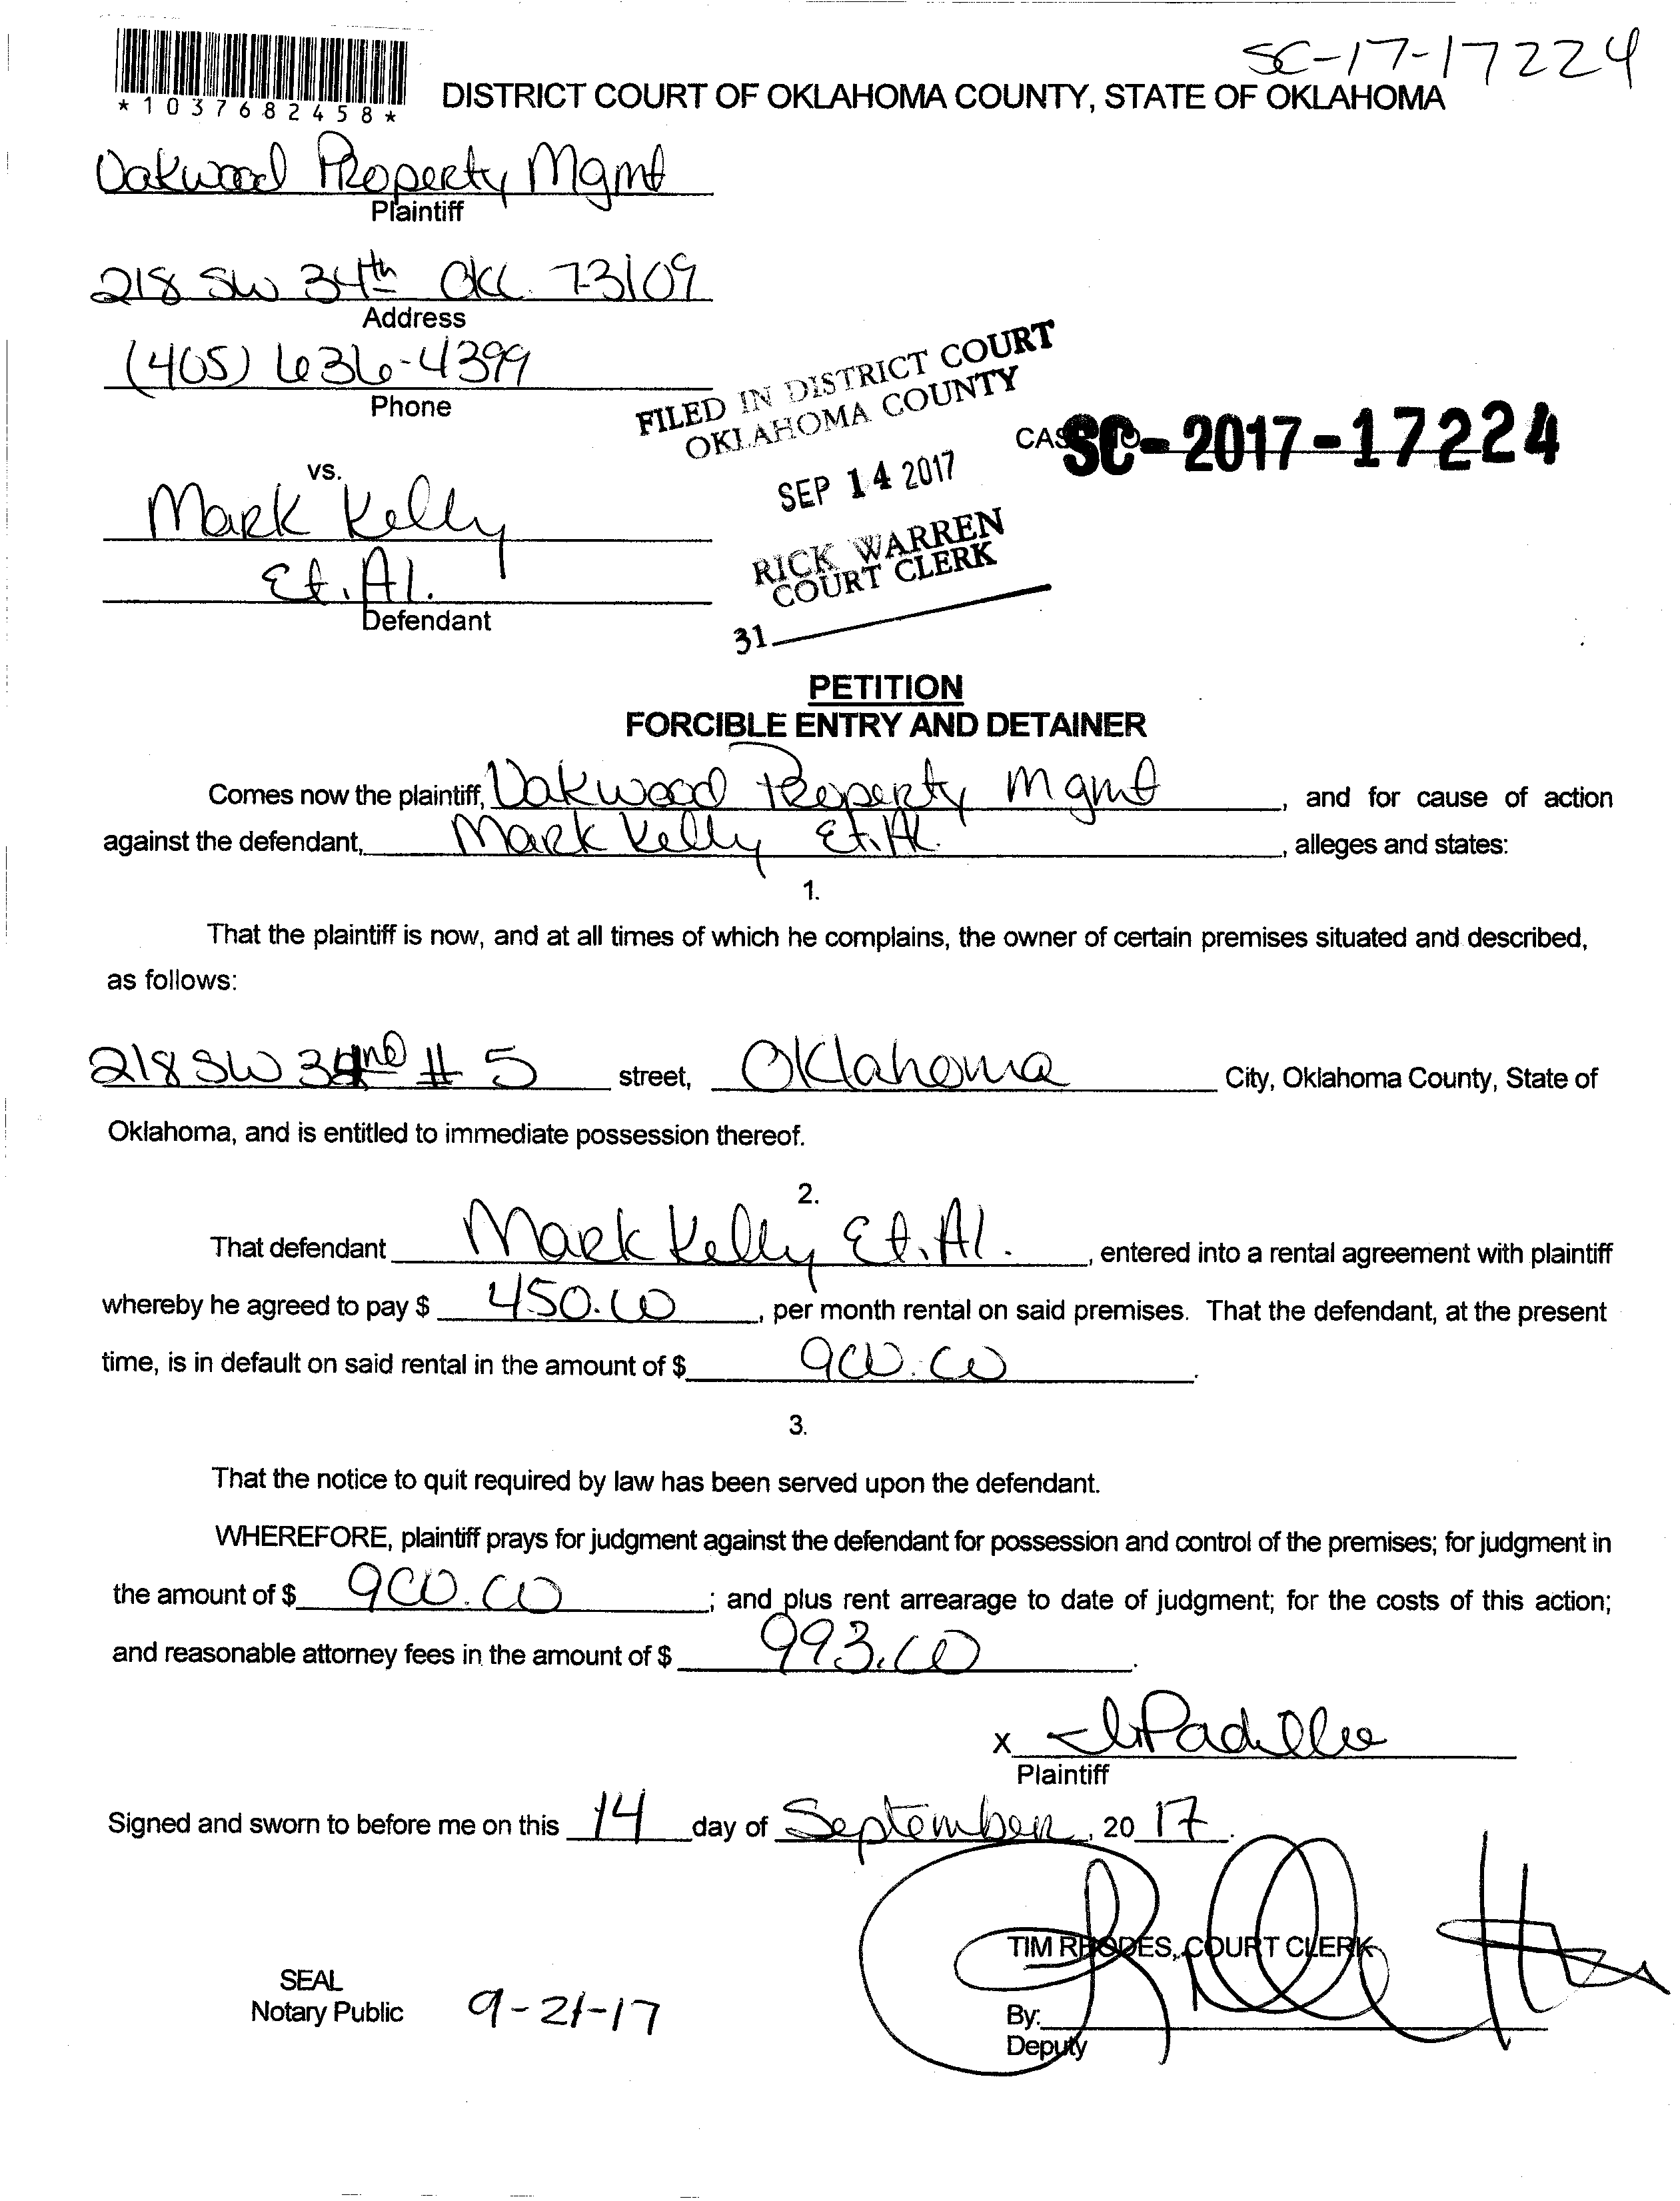 SC-17-17224
*1037682458*
DISTRICT COURT OF OKLAHOMA COUNTY, STATE OF OKLAHOMA
Oakwood Property Mgmt
Plaintiff
218 SW 34th OKC. 73109
Address
(405) 636-4399
Phone
FILED IN DISTRICT COURT
OKLAHOMA COUNTY
SEP 14 2017
RICK WARREN
COURT CLERK
31
SC-2017-17224
vs.
Mark Kelly
Et. Al.
Defendant
PETITION
FORCIBLE ENTRY AND DETAINER
Comes now the plaintiff, Oakwood Property Mgmt, and for cause of action
against the defendant, Mark Kelly Et. Al., alleges and states:
1.
That the plaintiff is now, and at all times of which he complains, the owner of certain premises situated and described,
as follows:
218 SW # 5 street, Oklahoma City, Oklahoma County, State of
Oklahoma, and is entitled to immediate possession thereof.
2.
That defendant Mark Kelly Et. Al., entered into a rental agreement with plaintiff
whereby he agreed to pay $ 450.00, per month rental on said premises. That the defendant, at the present
time, is in default on said rental in the amount of $ 900.00.
3.
That the notice to quit required by law has been served upon the defendant.
WHEREFORE, plaintiff prays for judgment against the defendant for possession and control of the premises; for judgment in
the amount of $ 900.00; and plus rent arrearage to date of judgment; for the costs of this action;
and reasonable attorney fees in the amount of $ 993.00.
X Padilla
Plaintiff
Signed and sworn to before me on this 14 day of September, 2017.
TIM RHODES, COURT CLERK
SEAL
Notary Public 9-21-17
By:
Deputy